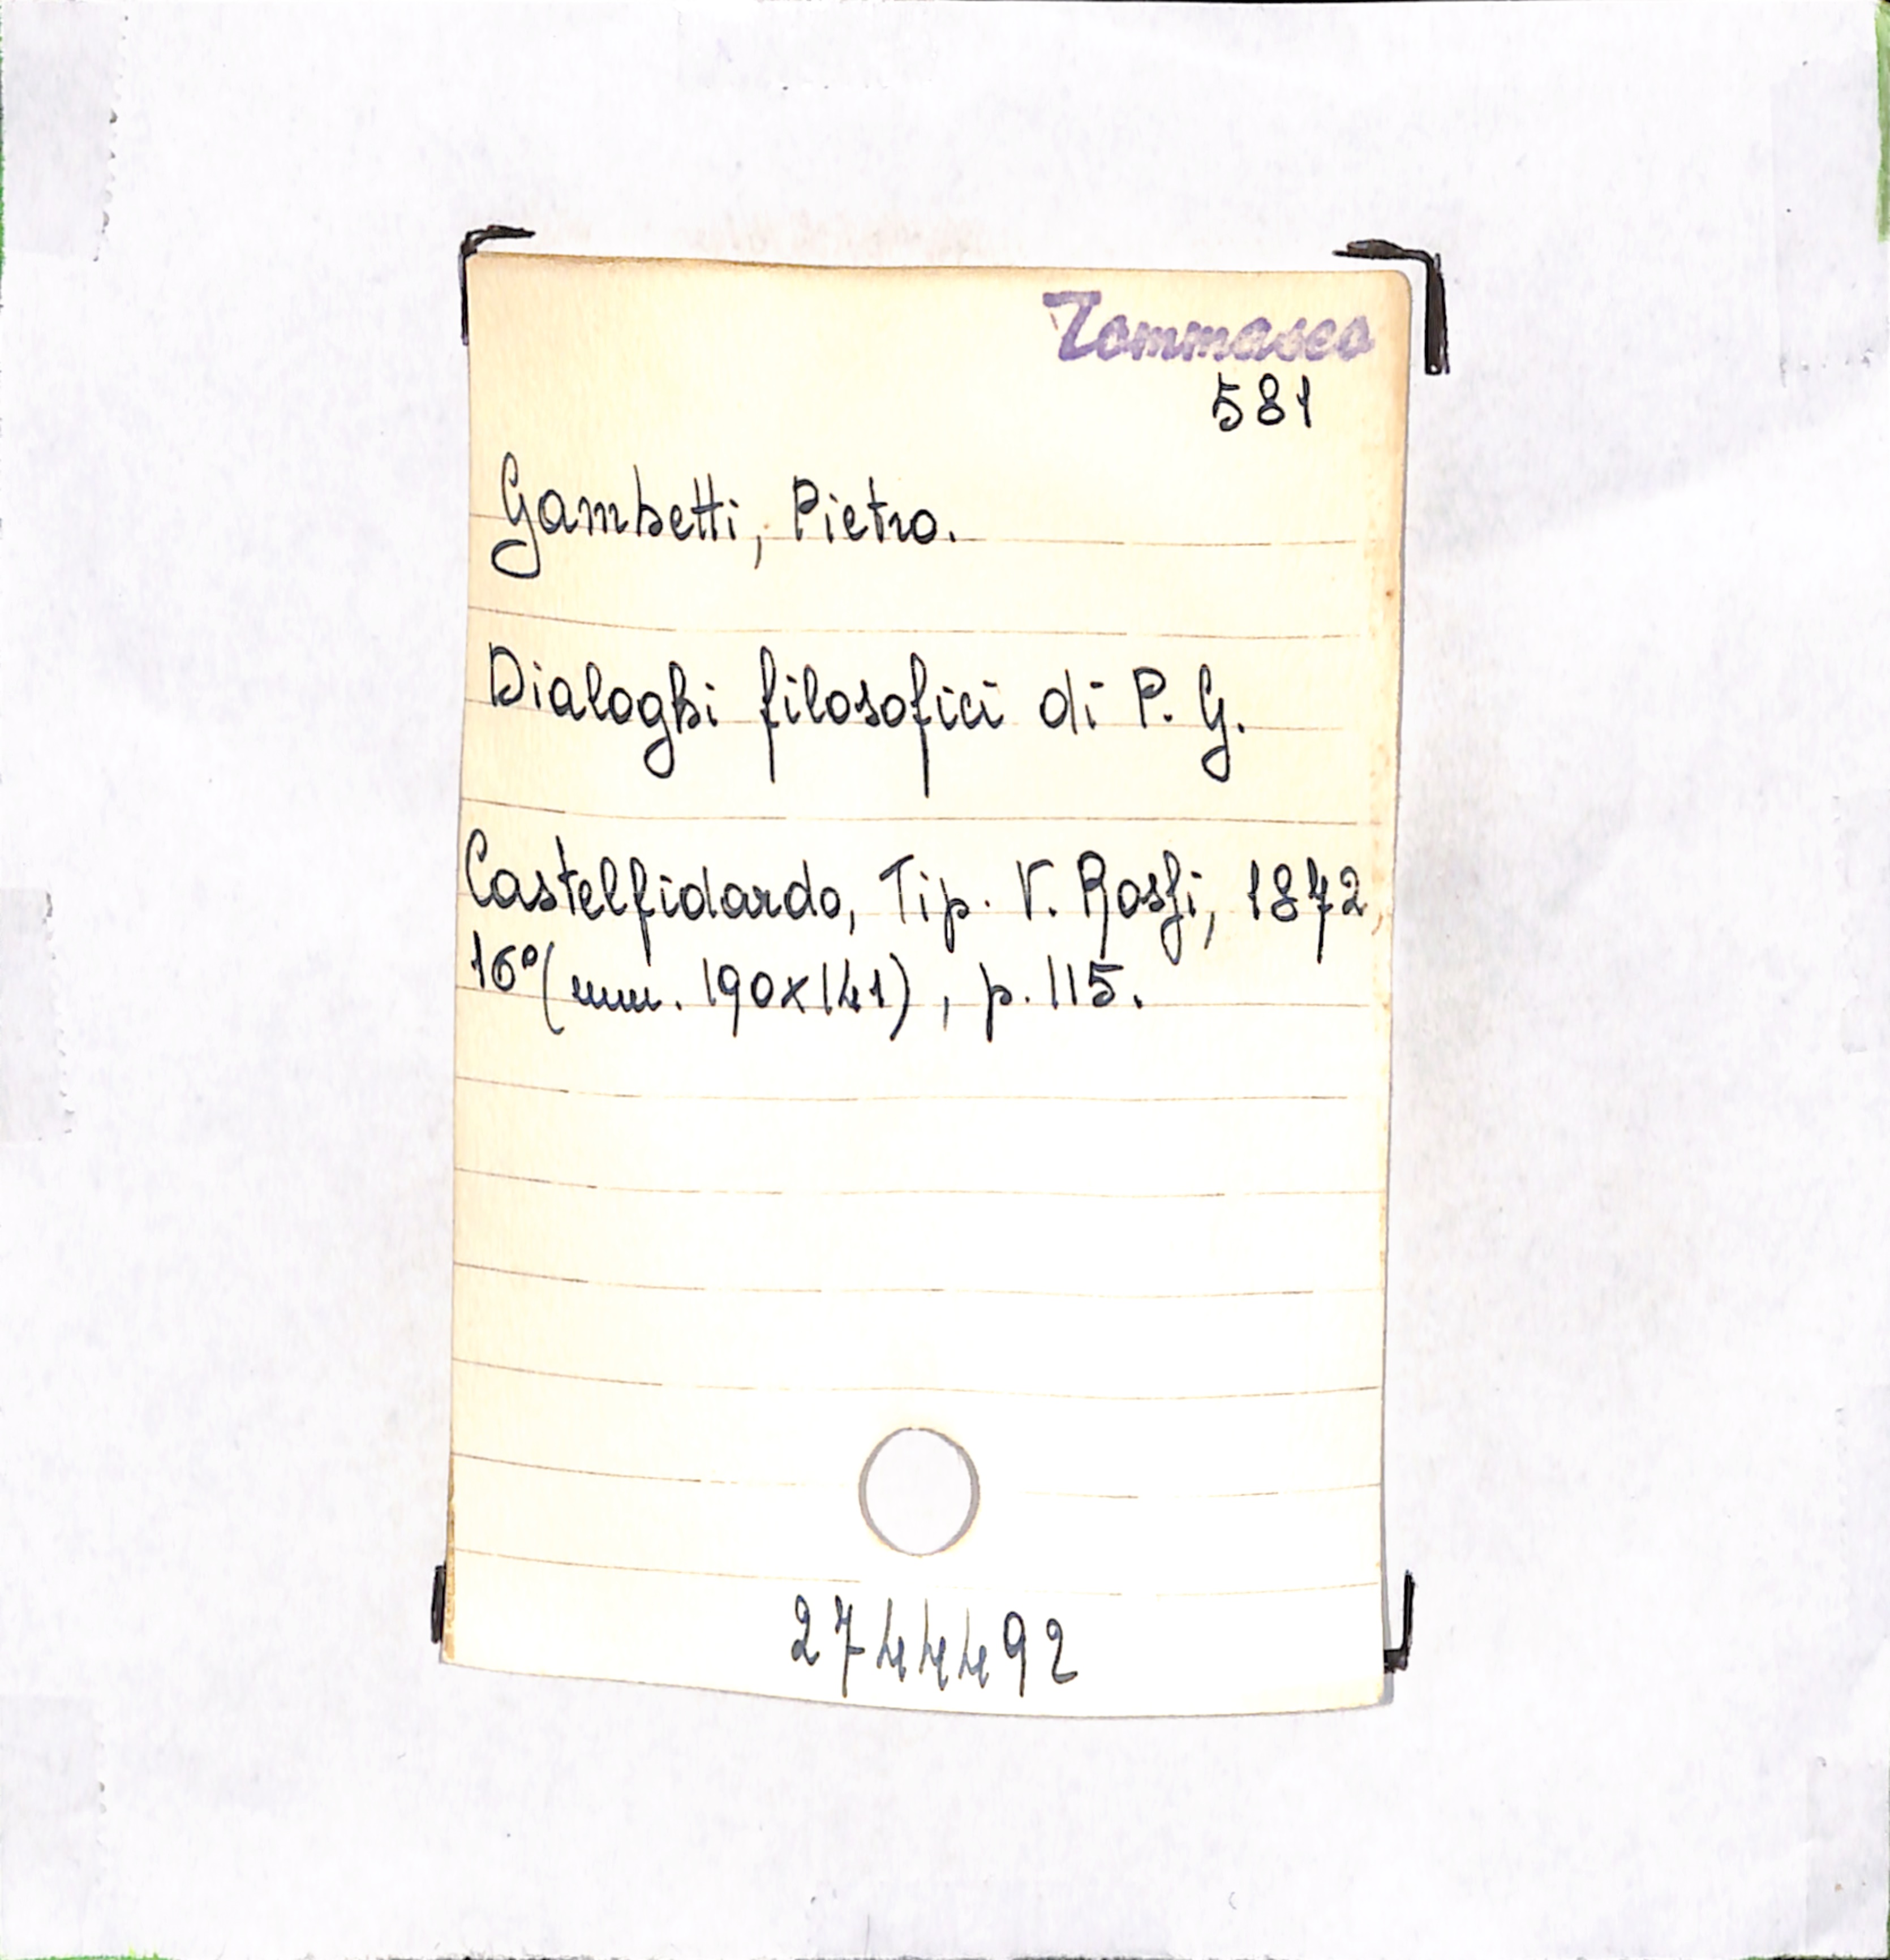 Tommaseo
581
Gambetti, Pietro.
Dialoghi filosofici di P. G.
Castelfidardo, Tip. V. Rossi, 1872,
16° (mm. 190x141), p. 115.
2744492